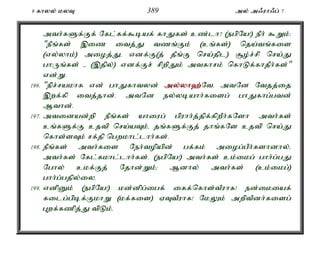 9 காலல் மலவு 389 அல் அஃராஃப் 7
அவர்களுக்குக் கேட்கக்கூடியக் காதுகள் உண்டா? (நபியே) நீர் கூறும்:
"நீங்கள் இணை வைத்து வணங்கும் (உங்கள்) தெய்வங்களை
(எல்லாம்) அழைத்து, எனக்கு(த் தீங்கு செய்திட) சூழ்ச்சி செய்து
பாருங்கள் - (இதில்) எனக்குச் சிறிதும் அவகாசம் கொடுக்காதீர்கள்"
என்று.
196. "நிச்சயமாக என் பாதுகாவலன் அல்லாஹ்வே அவனே வேதத்தை
இறக்கி வைத்தான். அவனே நல்லடியார்களைப் பாதுகாப்பவன்
ஆவான்.
197. அவனையன்றி நீங்கள் யாரைப் பிரார்த்திக்கிறீர்களோ அவர்கள்
உங்களுக்கு உதவி செய்யவும், தங்களுக்குத் தாங்களே உதவி செய்து
கொள்ளவும் சக்தி பெறமாட்டார்கள்.
198. நீங்கள் அவர்களை நேர்வழியின் பக்கம் அழைப்பீர்களானால்,
அவர்கள் கேட்கமாட்டார்கள். (நபியே) அவர்கள் உம்மைப் பார்ப்பது
போல் உமக்குத் தோன்றும்; ஆனால் அவர்கள் (உம்மைப்)
பார்ப்பதில்லை.
199. எனினும் (நபியே) மன்னிப்பைக் கைக்கொள்வீராக! நன்மையைக்
கடைப்பிடிக்குமாறு (மக்களை) ஏவுவீராக! மேலும் அறிவீனர்களைப்
புறக்கணித்து விடும்.